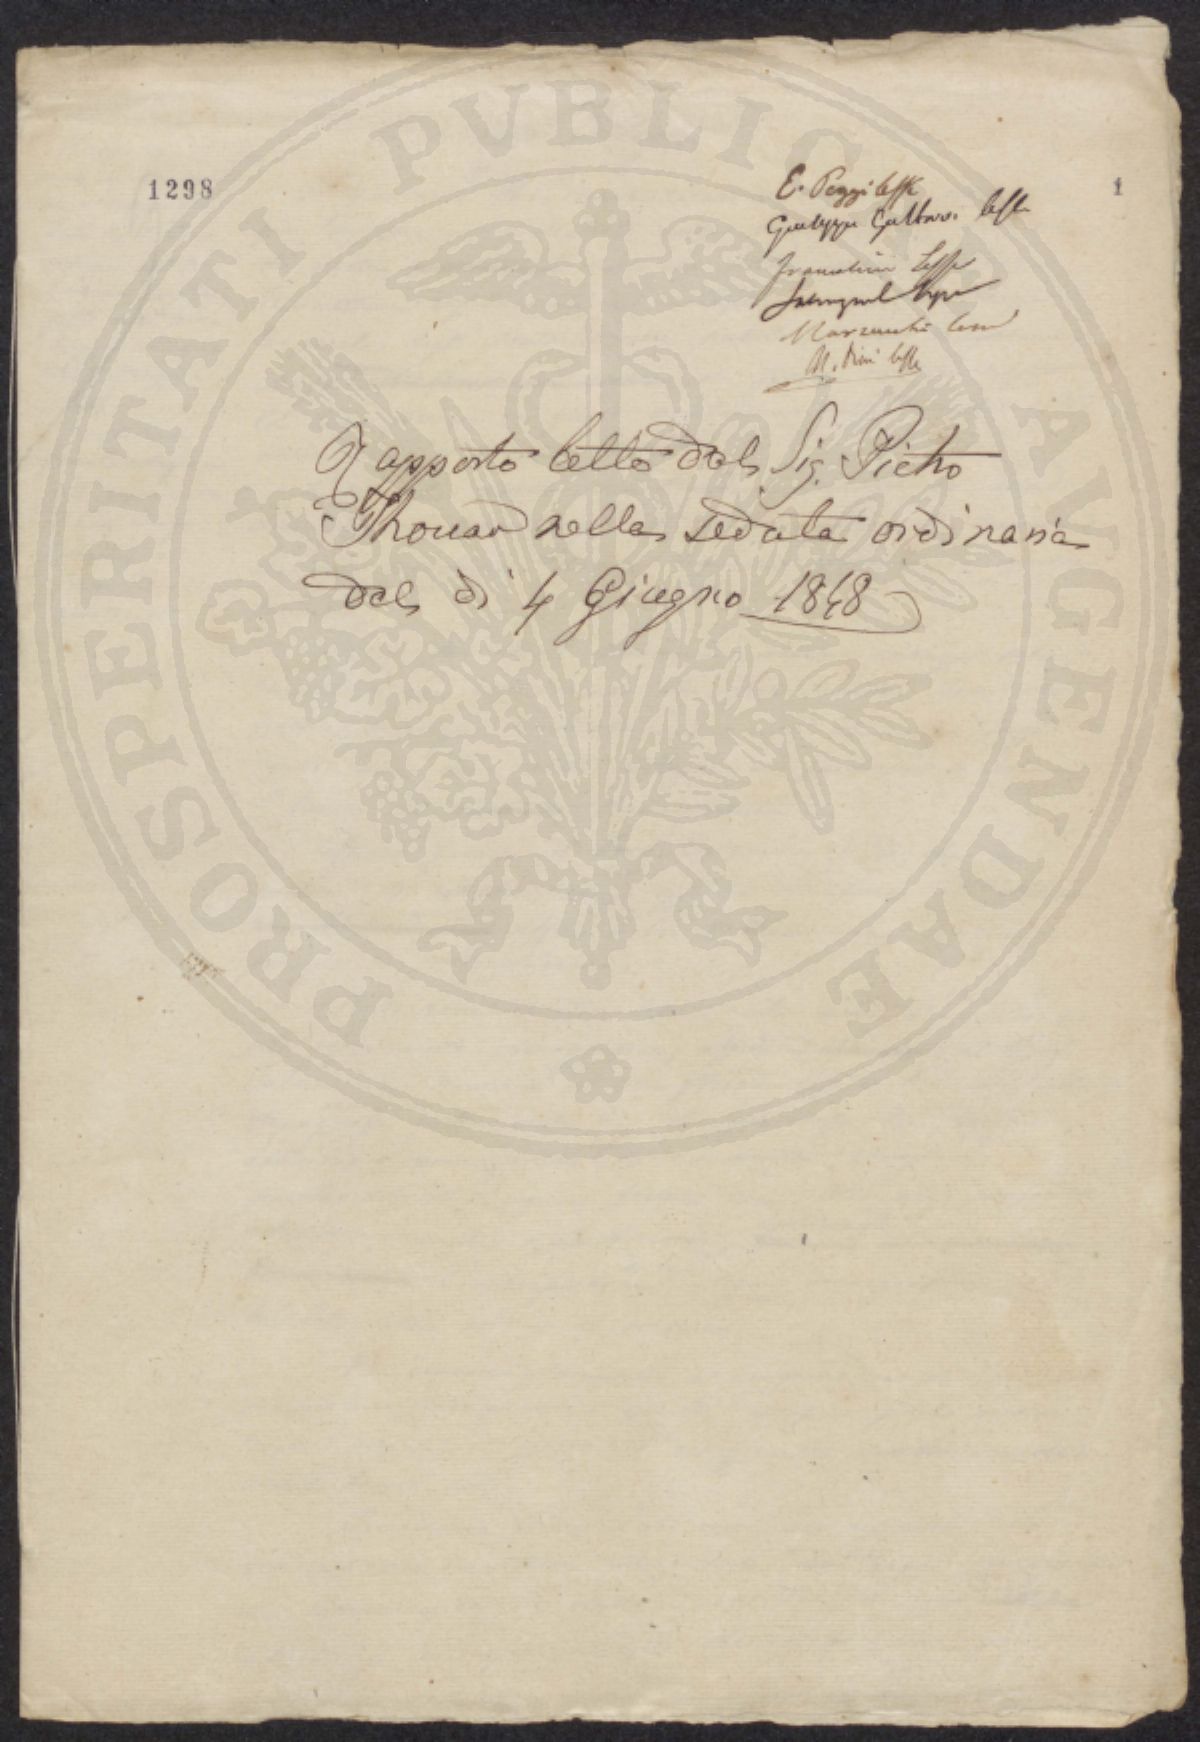 1298
1
E. Poggi lesse
Giuseppe lesse
lesse
lesse
M. lesse
Rapporto letto dal Sig. Pietro
Thouar nella seduta ordinaria
del dì 4 Giugno 1848
PROSPERITATI PVBLICAE AVGENDAE